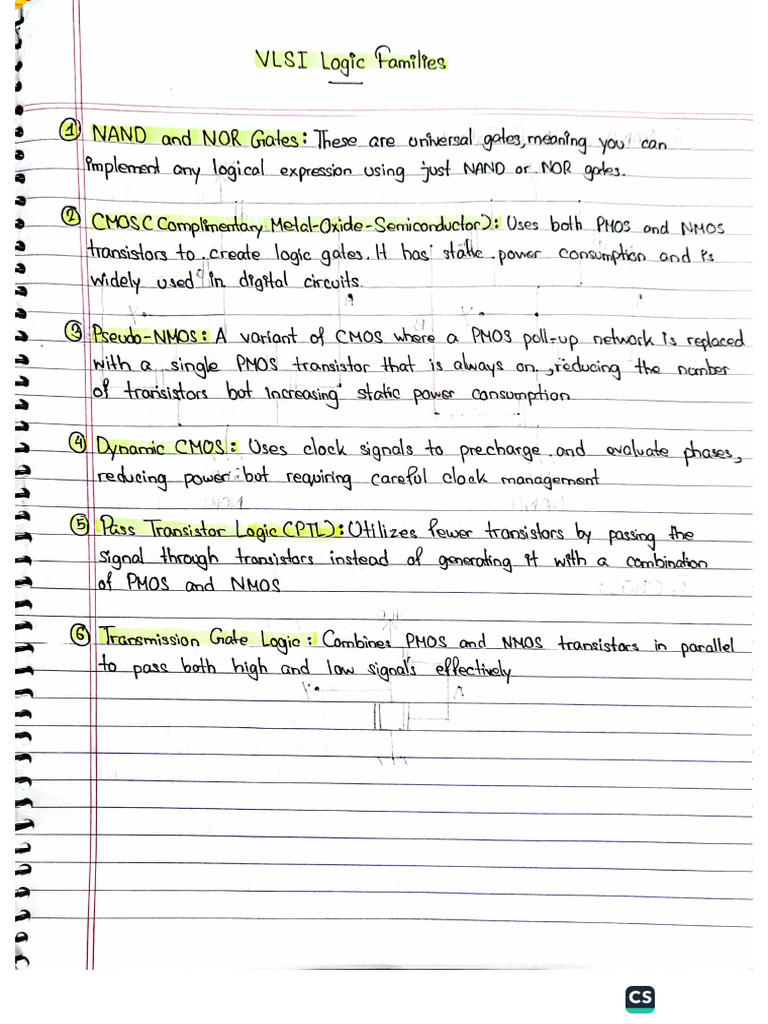 VLSI Logic Families
① NAND and NOR Gates: These are universal gates, meaning you can
implement any logical expression using just NAND or NOR gates.
② CMOS (Complimentary Metal-Oxide-Semiconductor): Uses both PMOS and NMOS
transistors to create logic gates. It has static power consumption and is
widely used in digital circuits.
③ Pseudo-NMOS: A variant of CMOS where a PMOS poll-up network is replaced
with a single PMOS transistor that is always on, reducing the number
of transistors but increasing static power consumption
④ Dynamic CMOS: Uses clock signals to precharge and evaluate phases,
reducing power but requiring careful clock management
⑤ Pass Transistor Logic (PTL): Utilizes fewer transistors by passing the
signal through transistors instead of generating it with a combination
of PMOS and NMOS
⑥ Transmission Gate Logic: Combines PMOS and NMOS transistors in parallel
to pass both high and low signals effectively
CS